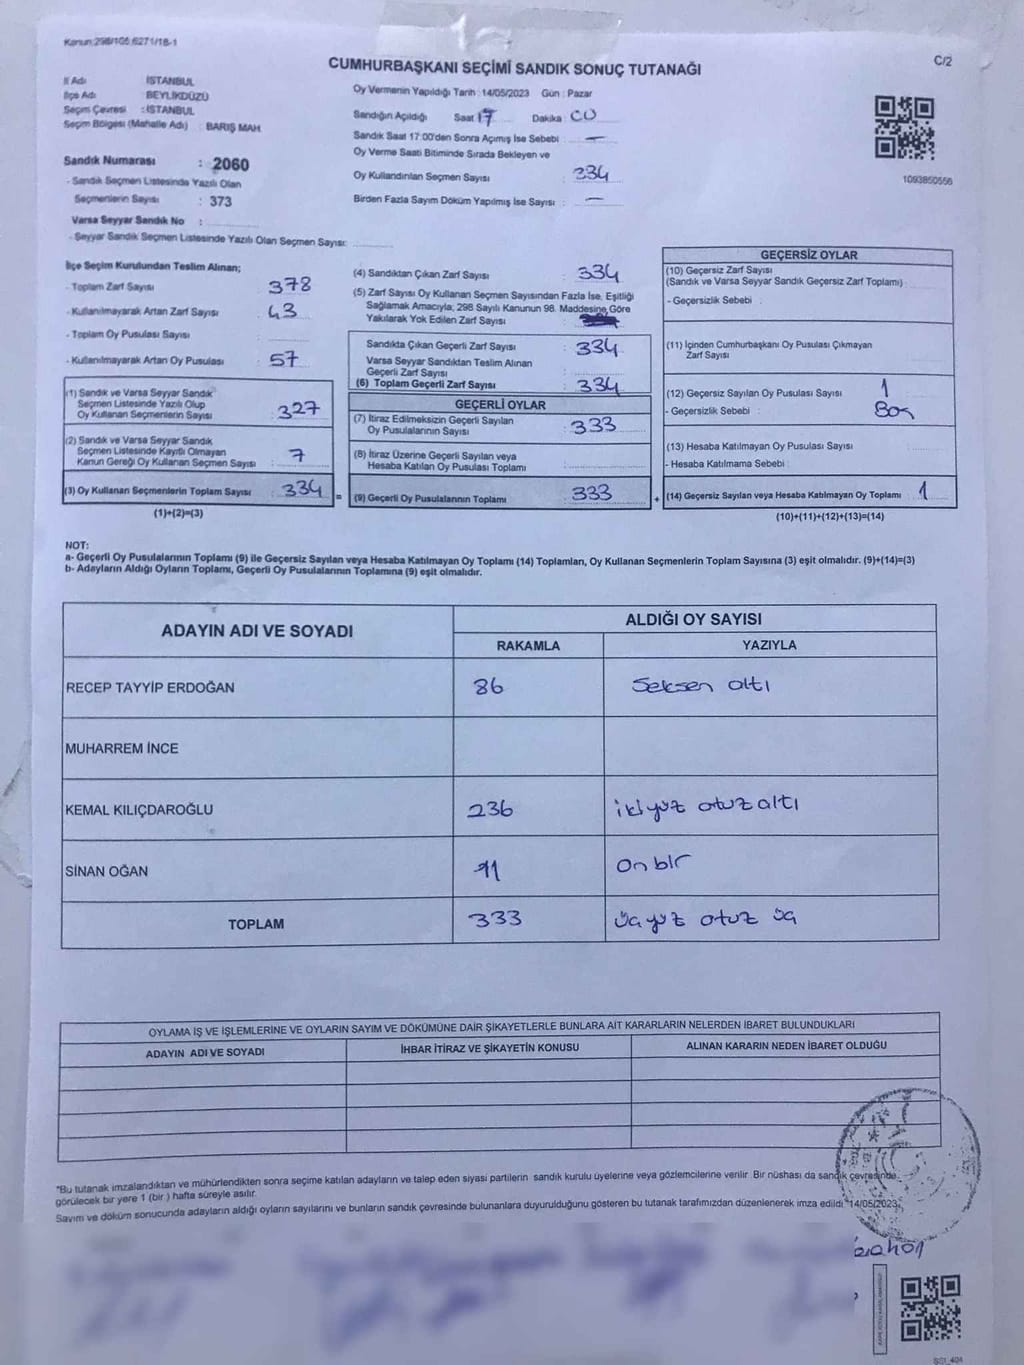 Kanun:298/105;6271/18-1
C/2
CUMHURBAŞKANI SEÇİMİ SANDIK SONUÇ TUTANAĞI
İl Adı : İSTANBUL
İlçe Adı : BEYLİKDÜZÜ
Seçim Çevresi : İSTANBUL
Seçim Bölgesi (Mahalle Adı) : BARIŞ MAH.
Sandık Numarası : 2060
- Sandık Seçmen Listesinde Yazılı Olan
Seçmenlerin Sayısı : 373
Varsa Seyyar Sandık No :
- Seyyar Sandık Seçmen Listesinde Yazılı Olan Seçmen Sayısı:
Oy Vermenin Yapıldığı Tarih : 14/05/2023 Gün : Pazar
Sandığın Açıldığı Saat 17 Dakika 00
Sandık Saat 17:00'den Sonra Açımış İse Sebebi : —
Oy Verme Saati Bitiminde Sırada Bekleyen ve
Oy Kullandırılan Seçmen Sayısı : 334
Birden Fazla Sayım Döküm Yapılmış İse Sayısı : —
1093850556
İlçe Seçim Kurulundan Teslim Alınan;
- Toplam Zarf Sayısı : 378
- Kullanılmayarak Artan Zarf Sayısı : 43
- Toplam Oy Pusulası Sayısı :
- Kullanılmayarak Artan Oy Pusulası : 57
(1) Sandık ve Varsa Seyyar Sandık
Seçmen Listesinde Yazılı Olup
Oy Kullanan Seçmenlerin Sayısı : 327
(2) Sandık ve Varsa Seyyar Sandık
Seçmen Listesinde Kayıtlı Olmayan
Kanun Gereği Oy Kullanan Seçmen Sayısı : 7
(3) Oy Kullanan Seçmenlerin Toplam Sayısı : 334 =
(1)+(2)=(3)
(4) Sandıktan Çıkan Zarf Sayısı : 334
(5) Zarf Sayısı Oy Kullanan Seçmen Sayısından Fazla İse, Eşitliği
Sağlamak Amacıyla, 298 Sayılı Kanunun 98. Maddesine Göre
Yakılarak Yok Edilen Zarf Sayısı :
Sandıkta Çıkan Geçerli Zarf Sayısı : 334
Varsa Seyyar Sandıktan Teslim Alınan
Geçerli Zarf Sayısı :
(6) Toplam Geçerli Zarf Sayısı : 334
GEÇERLİ OYLAR
(7) İtiraz Edilmeksizin Geçerli Sayılan
Oy Pusulalarının Sayısı : 333
(8) İtiraz Üzerine Geçerli Sayılan veya
Hesaba Katılan Oy Pusulası Toplamı :
(9) Geçerli Oy Pusulalarının Toplamı : 333 +
GEÇERSİZ OYLAR
(10) Geçersiz Zarf Sayısı
(Sandık ve Varsa Seyyar Sandık Geçersiz Zarf Toplamı) :
- Geçersizlik Sebebi :
(11) İçinden Cumhurbaşkanı Oy Pusulası Çıkmayan
Zarf Sayısı
(12) Geçersiz Sayılan Oy Pusulası Sayısı : 1
- Geçersizlik Sebebi : Boş
(13) Hesaba Katılmayan Oy Pusulası Sayısı :
- Hesaba Katılmama Sebebi :
(14) Geçersiz Sayılan veya Hesaba Katılmayan Oy Toplamı : 1
(10)+(11)+(12)+(13)=(14)
NOT:
a- Geçerli Oy Pusulalarının Toplamı (9) ile Geçersiz Sayılan veya Hesaba Katılmayan Oy Toplamı (14) Toplamları, Oy Kullanan Seçmenlerin Toplam Sayısına (3) eşit olmalıdır. (9)+(14)=(3)
b- Adayların Aldığı Oyların Toplamı, Geçerli Oy Pusulalarının Toplamına (9) eşit olmalıdır.
ADAYIN ADI VE SOYADI
ALDIĞI OY SAYISI
RAKAMLA YAZIYLA
RECEP TAYYİP ERDOĞAN 86 Seksen altı
MUHARREM İNCE
KEMAL KILIÇDAROĞLU 236 iki yüz otuz altı
SİNAN OĞAN 11 On bir
TOPLAM 333 üç yüz otuz üç
OYLAMA İŞ VE İŞLEMLERİNE VE OYLARIN SAYIM VE DÖKÜMÜNE DAİR ŞİKAYETLERLE BUNLARA AİT KARARLARIN NELERDEN İBARET BULUNDUKLARI
ADAYIN ADI VE SOYADI İHBAR İTİRAZ VE ŞİKAYETİN KONUSU ALINAN KARARIN NEDEN İBARET OLDUĞU
"Bu tutanak imzalandıktan ve mühürlendikten sonra seçime katılan adayların ve talep eden siyasi partilerin sandık kurulu üyelerine veya gözlemcilerine verilir. Bir nüshası da sandık çevresinde
görülecek bir yere 1 (bir ) hafta süreyle asılır.
Sayım ve döküm sonucunda adayların aldığı oyların sayılarını ve bunların sandık çevresinde bulunanlara duyurulduğunu gösteren bu tutanak tarafımızdan düzenlenerek imza edildi. 14/05/2023